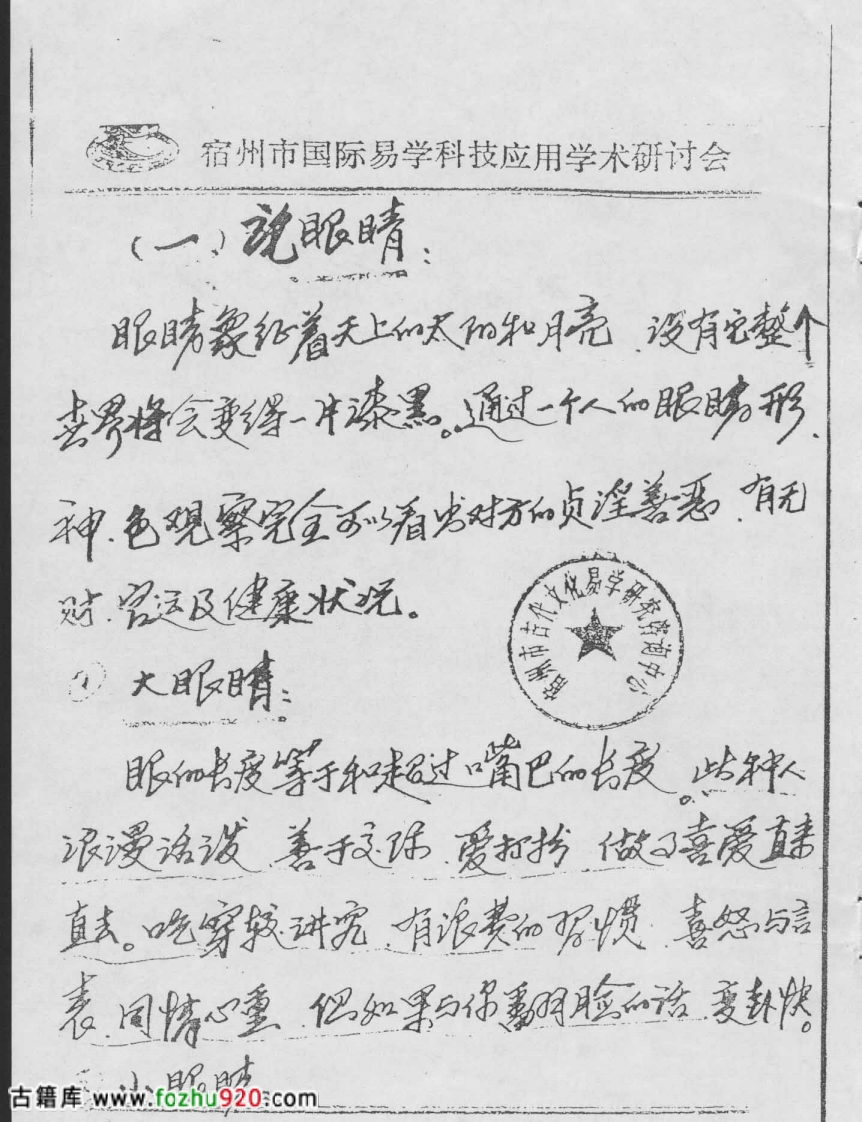 宿州市国际易学科技应用学术研讨会
(一)说眼睛:
眼睛象征着天上的太阳和月亮、没有它整个
世界将会变得一片漆黑。通过一个人的眼睛形、
神、色观察完全可以看出对方的贞淫善恶、有无
财、官运及健康状况。
宿州市古代文化易学研究咨询中心
① 大眼睛:
眼的长度等于和超过嘴巴的长度。此种人
浪漫活泼、善于交际、爱打扮、做事喜爱直来
直去。吃穿较讲究、有浪费的习惯、喜怒与言
表、同情心重、但如果与你翻脸的话、变卦快。
小眼睛
古籍库 www.fozhu920.com